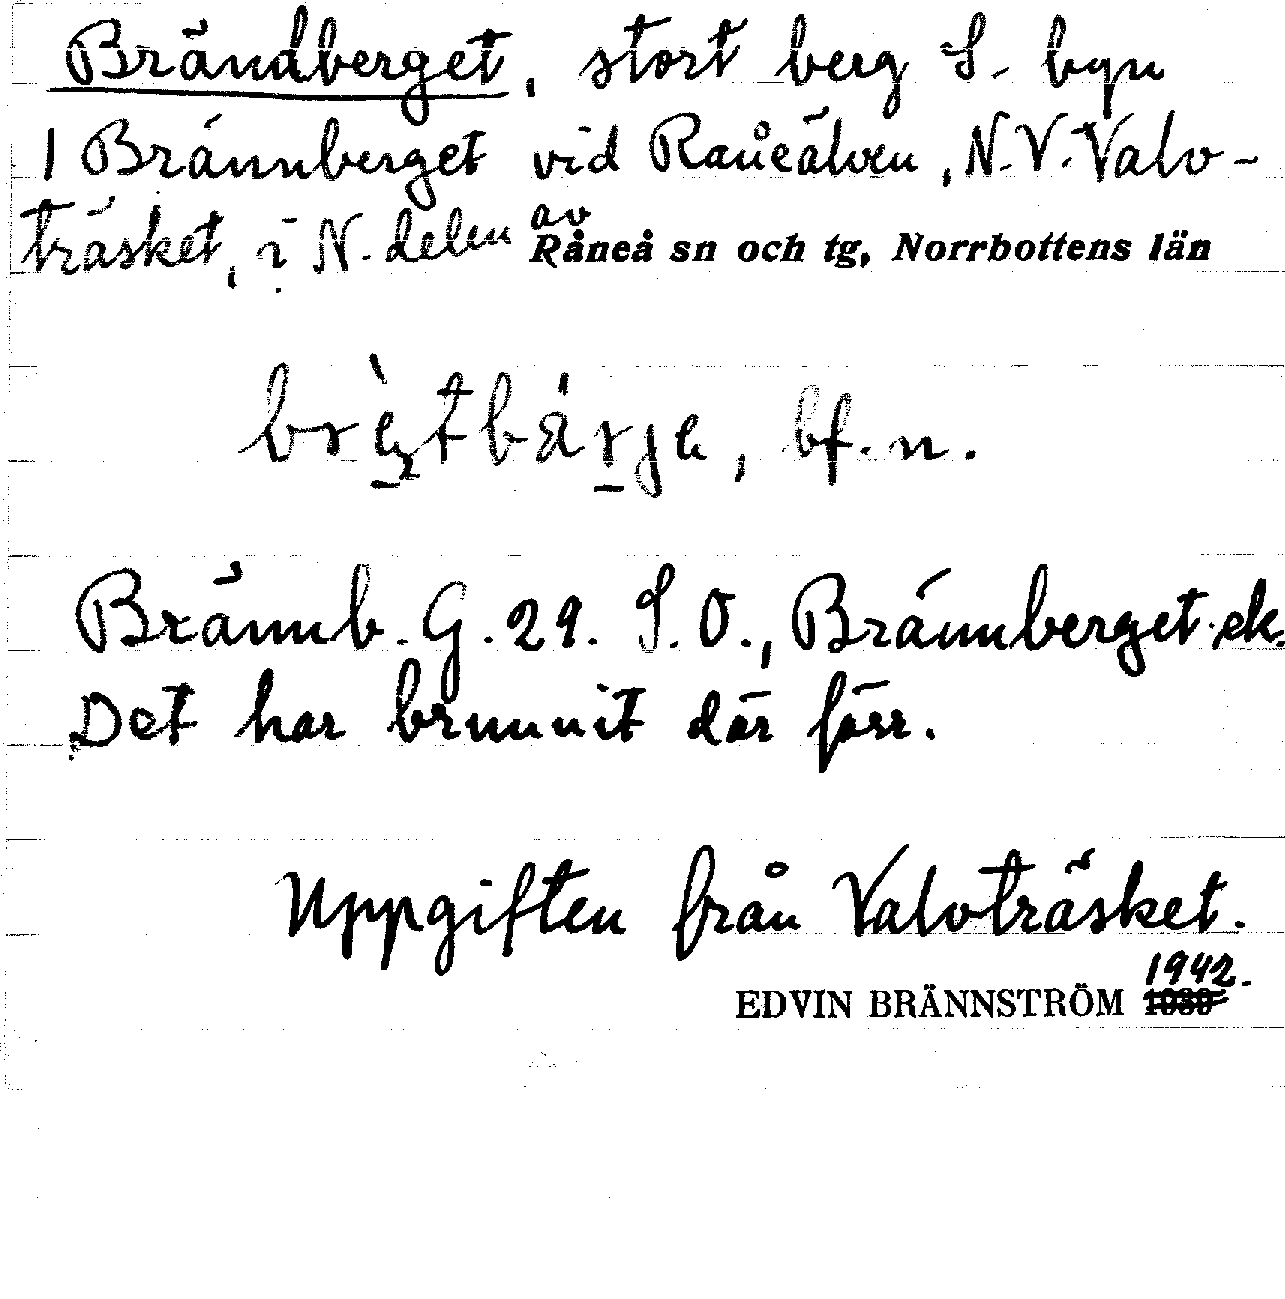 Brändberget, stort berg S. byn
1 Brännberget vid Råneälven, N.V. Valv-
träsket, i N. delen av Råneå sn och tg, Norrbottens län
bf. n.
Brännb. G. 29. S.O., Brännberget ek.
Det har brunnit där förr.
Uppgiften från Valvträsket.
EDVIN BRÄNNSTRÖM 1942.